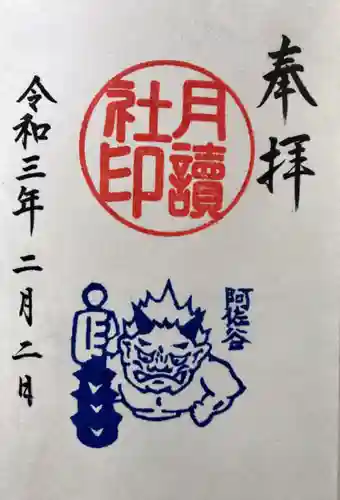 奉拝
月讀
社印
阿佐谷
令和三年 二月二日